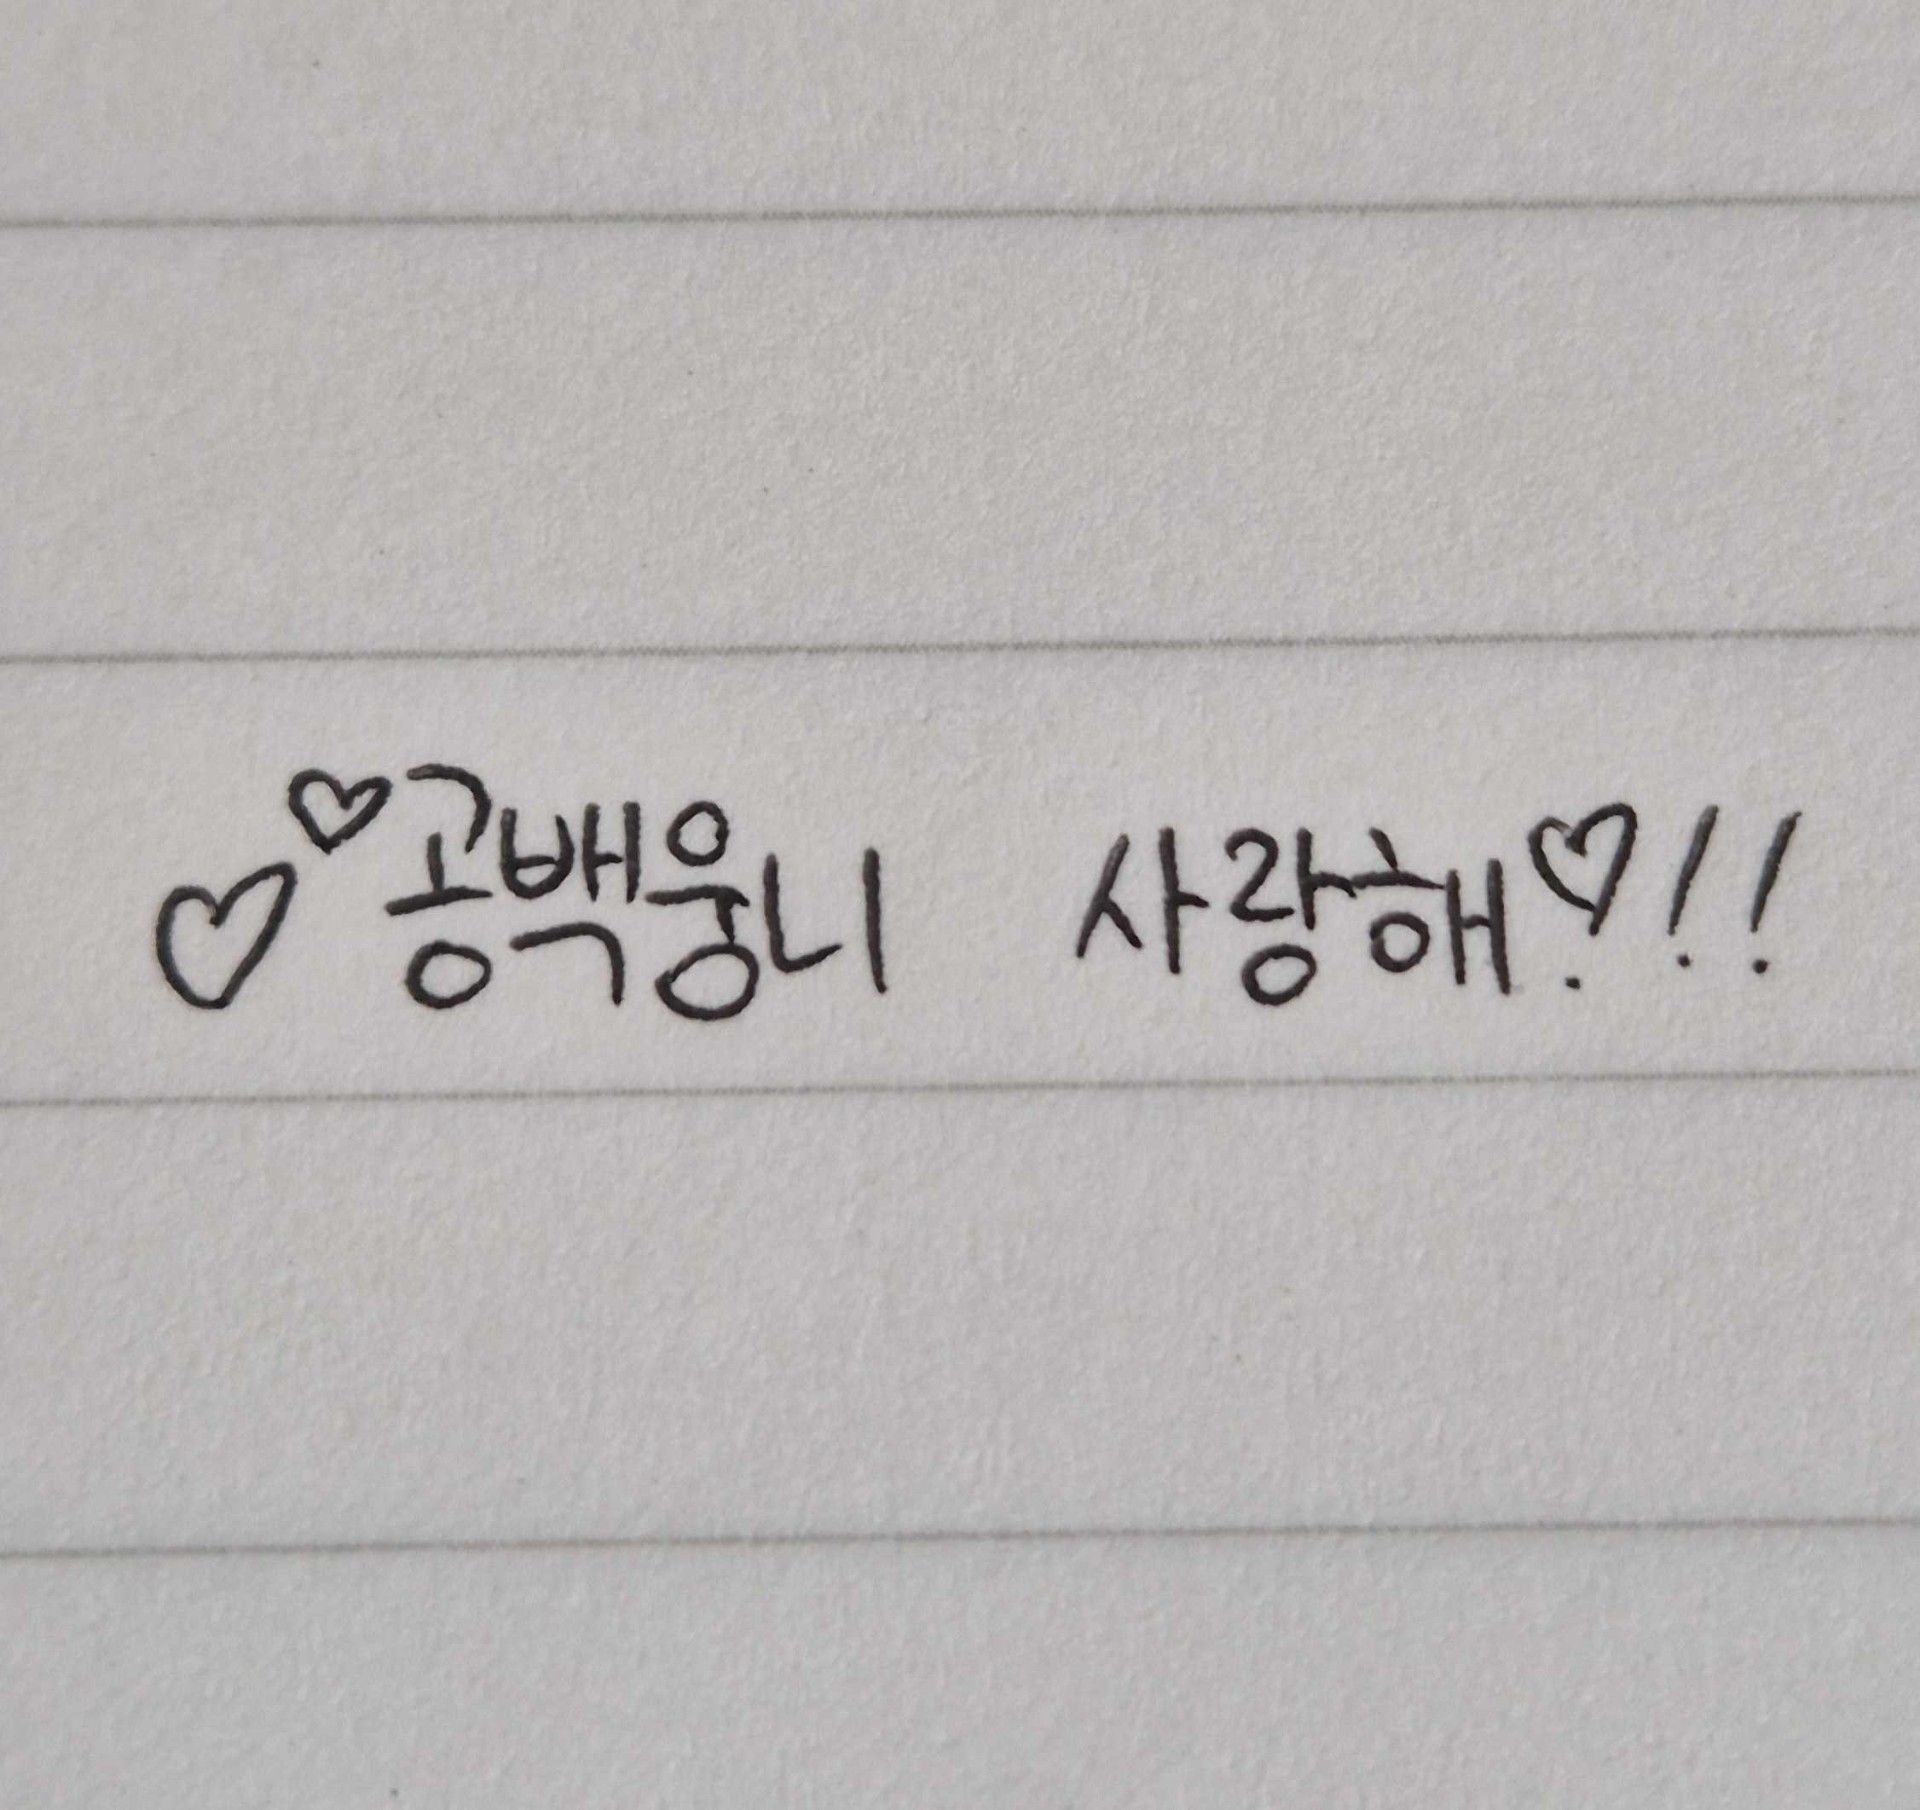 ♡♡공백웅니 사랑해♡!!